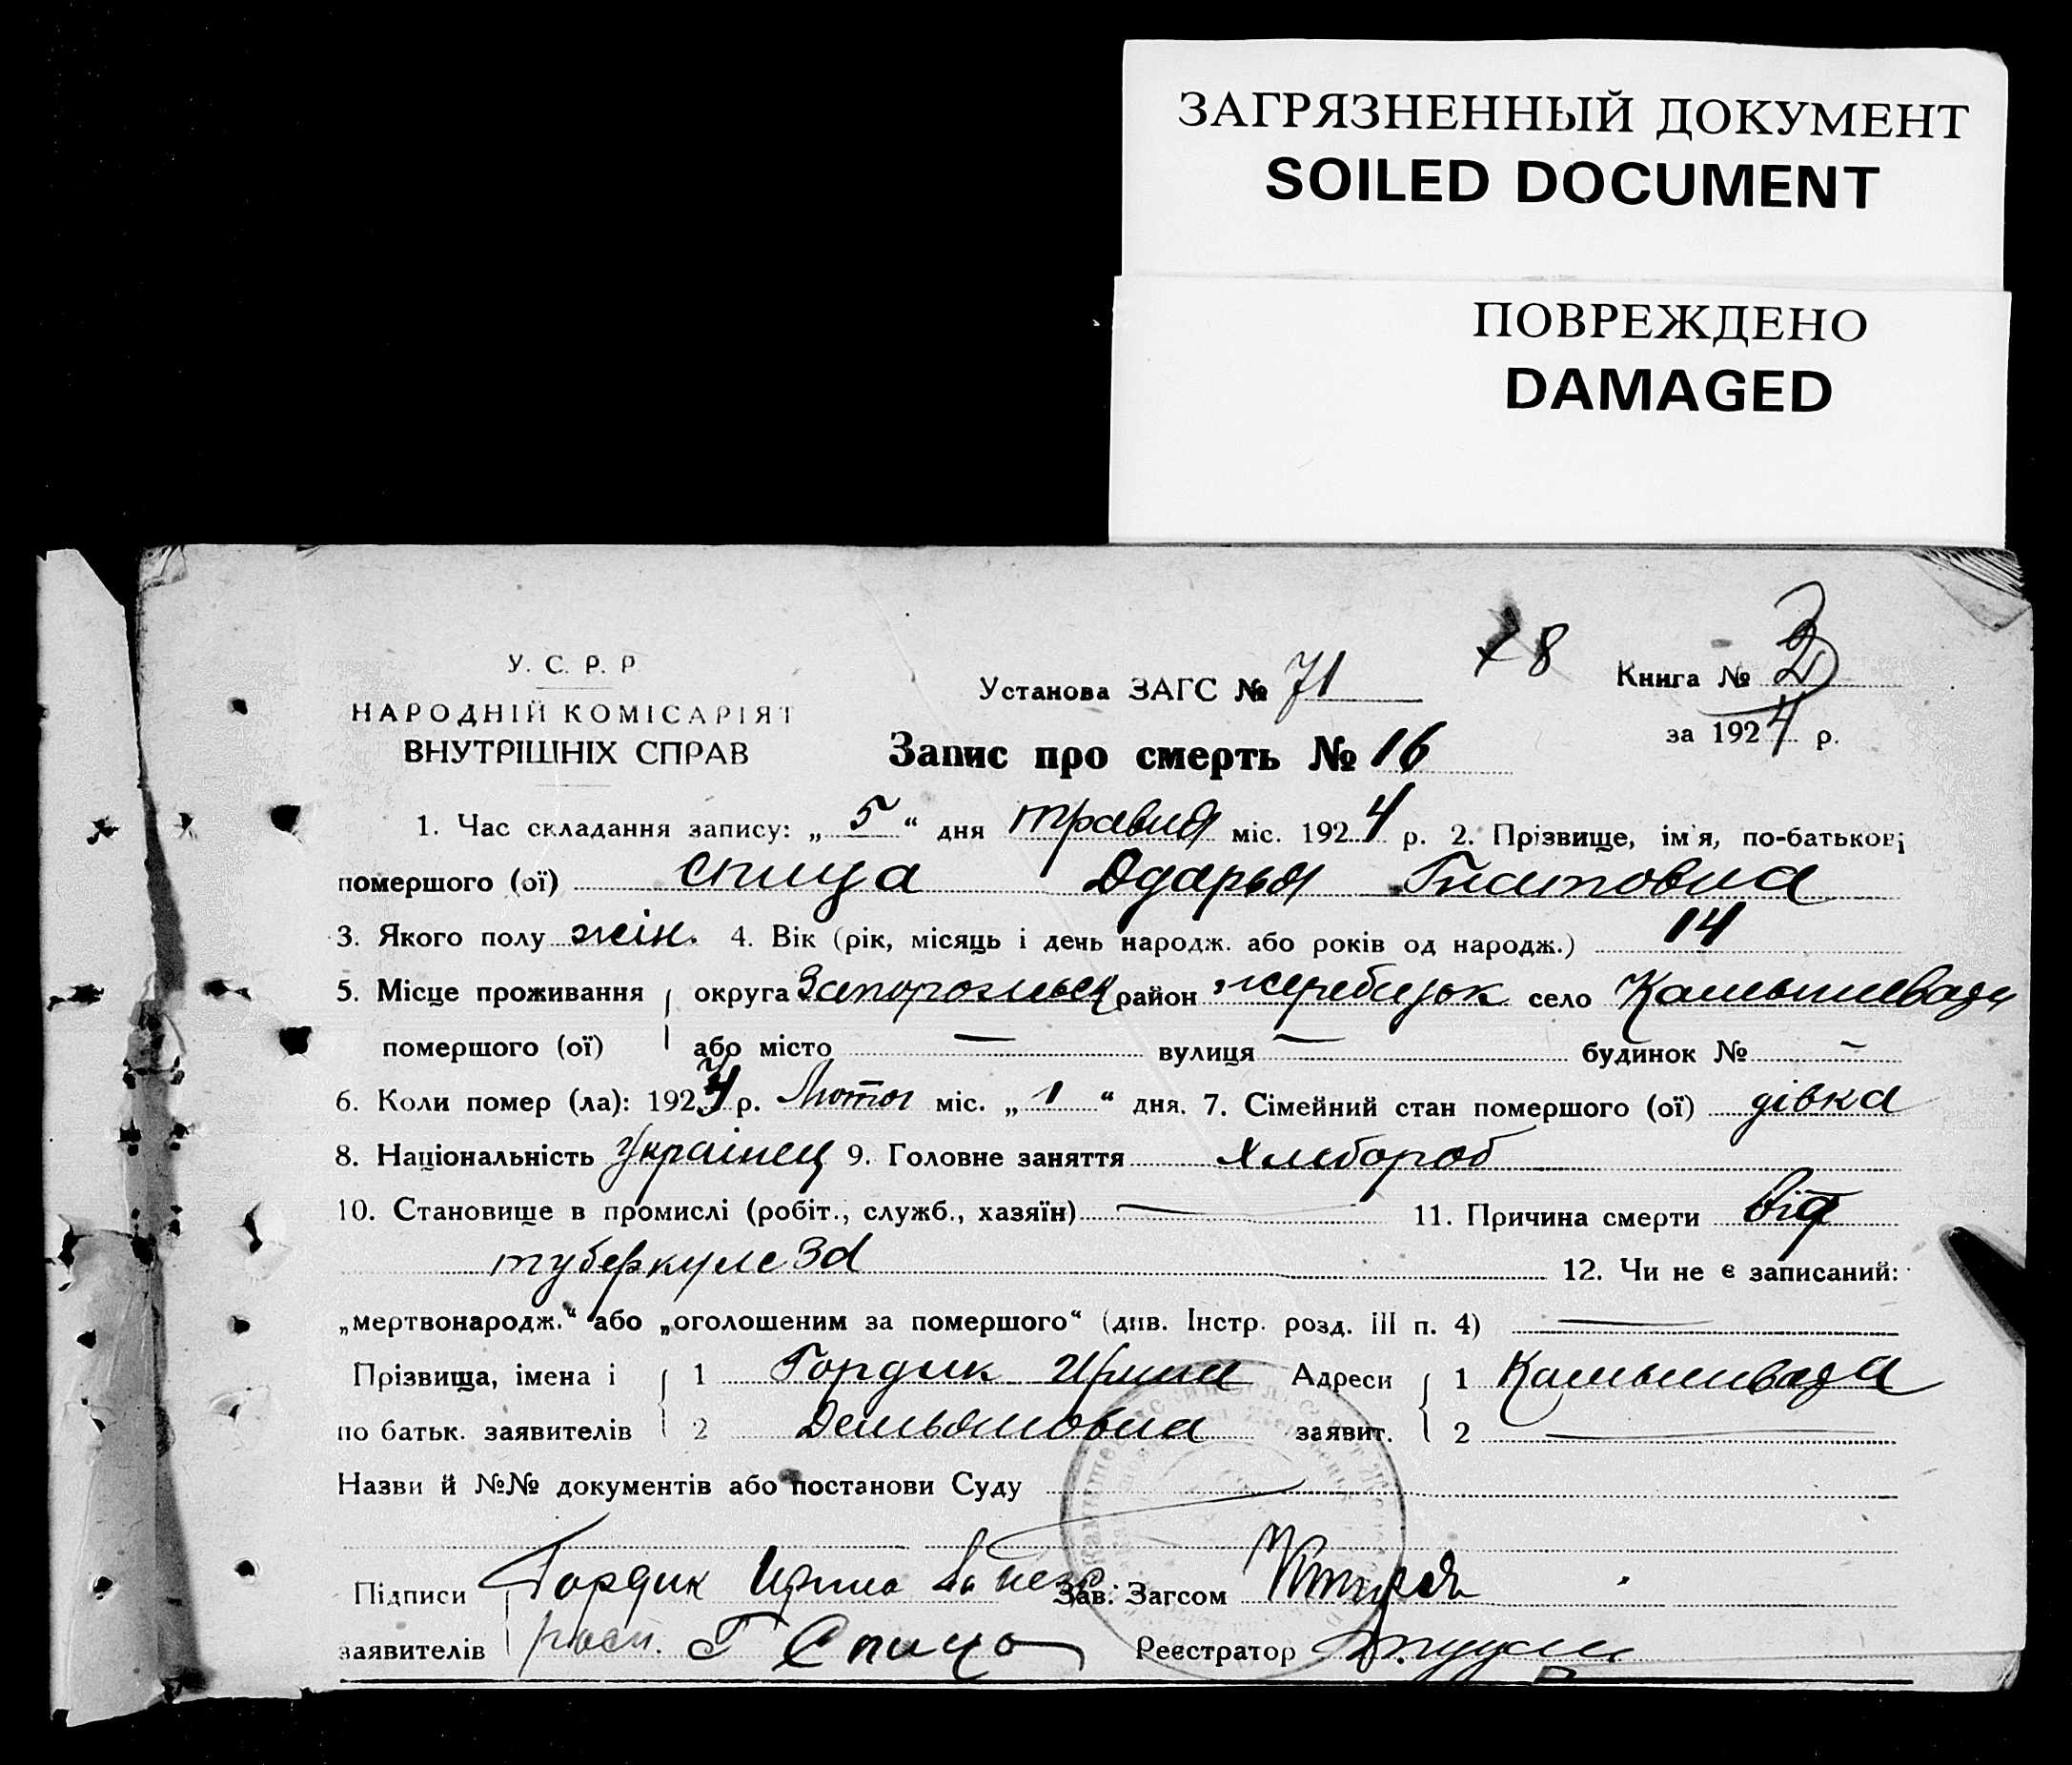 ЗАГРЯЗНЕННЫЙ ДОКУМЕНТ
SOILED DOCUMENT
ПОВРЕЖДЕНО
DAMAGED
У. С. Р. Р
НАРОДНІЙ КОМІСАРІЯТ
ВНУТРІШНІХ СПРАВ
Установа ЗАГС № 71
8
Книга № 3
за 1924 р.
Запис про смерть № 16
1. Час складання запису: „ 5 “ дня травня міс. 1924 р. 2. Прізвище, ім'я, по-батькові
помершого (ої) Спица Одарья Гнатовна
3. Якого полу жін. 4. Вік (рік, місяць і день народж. або років од народж.) 14
5. Місце проживання округа Запорозька район Жеребцьок село Камышеваха
помершого (ої) або місто — вулиця — будинок № —
6. Коли помер (ла): 1924 р. Лютог міс. „ 1 “ дня. 7. Сімейний стан помершого (ої) дівка
8. Національність Українец 9. Головне заняття Хлібороб
10. Становище в промислі (робіт., служб., хазяїн) — 11. Причина смерти від
туберкулеза 12. Чи не є записаний:
„мертвонародж.“ або „оголошеним за помершого“ (див. Інстр. розд. III п. 4) —
Прізвища, імена і 1 Гордик Ирина Адреси 1 Камышеваха
по батьк. заявителів 2 Демьяновна заявит. 2 —
Назви й №№ документів або постанови Суду
Підписи Гордик Ирина за Зав. Загсом
заявителів Г Спица Реєстратор